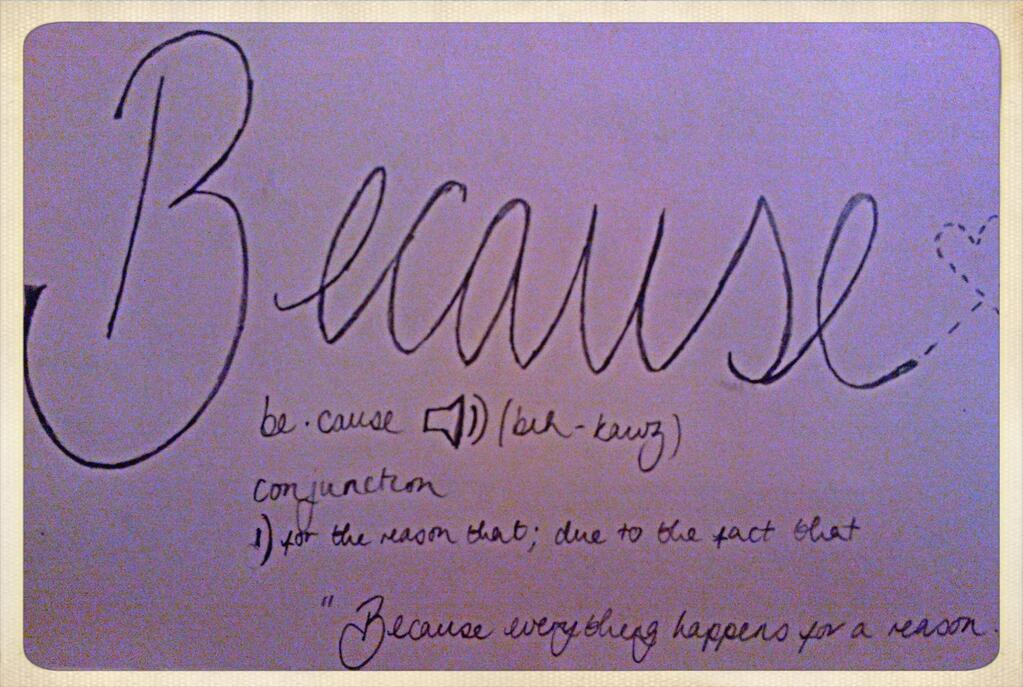 Because
be·cause (beh-kawz)
conjunction
1) for the reason that; due to the fact that
"Because everything happens for a reason.